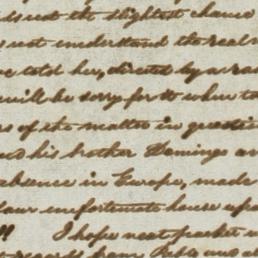 is not the slightest chance
s not understand the real
e told her, directed by a
will be sorry for it when
of the matter in question
and his brother Domingo
absence in Europe, made
our unfortunate house upon
!! I hope next packet